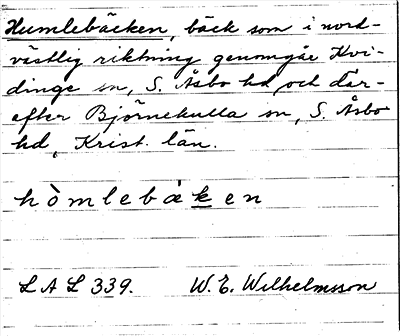 Humlebäcken, bäck som i nord-
västlig riktning genomgår Kvi-
dinge sn, S. Åsbo hd, och där-
efter Björnekulla sn, S. Åsbo
hd, Krist. län.
hòmlebäken
LAL 339. W. E. Wilhelmsson